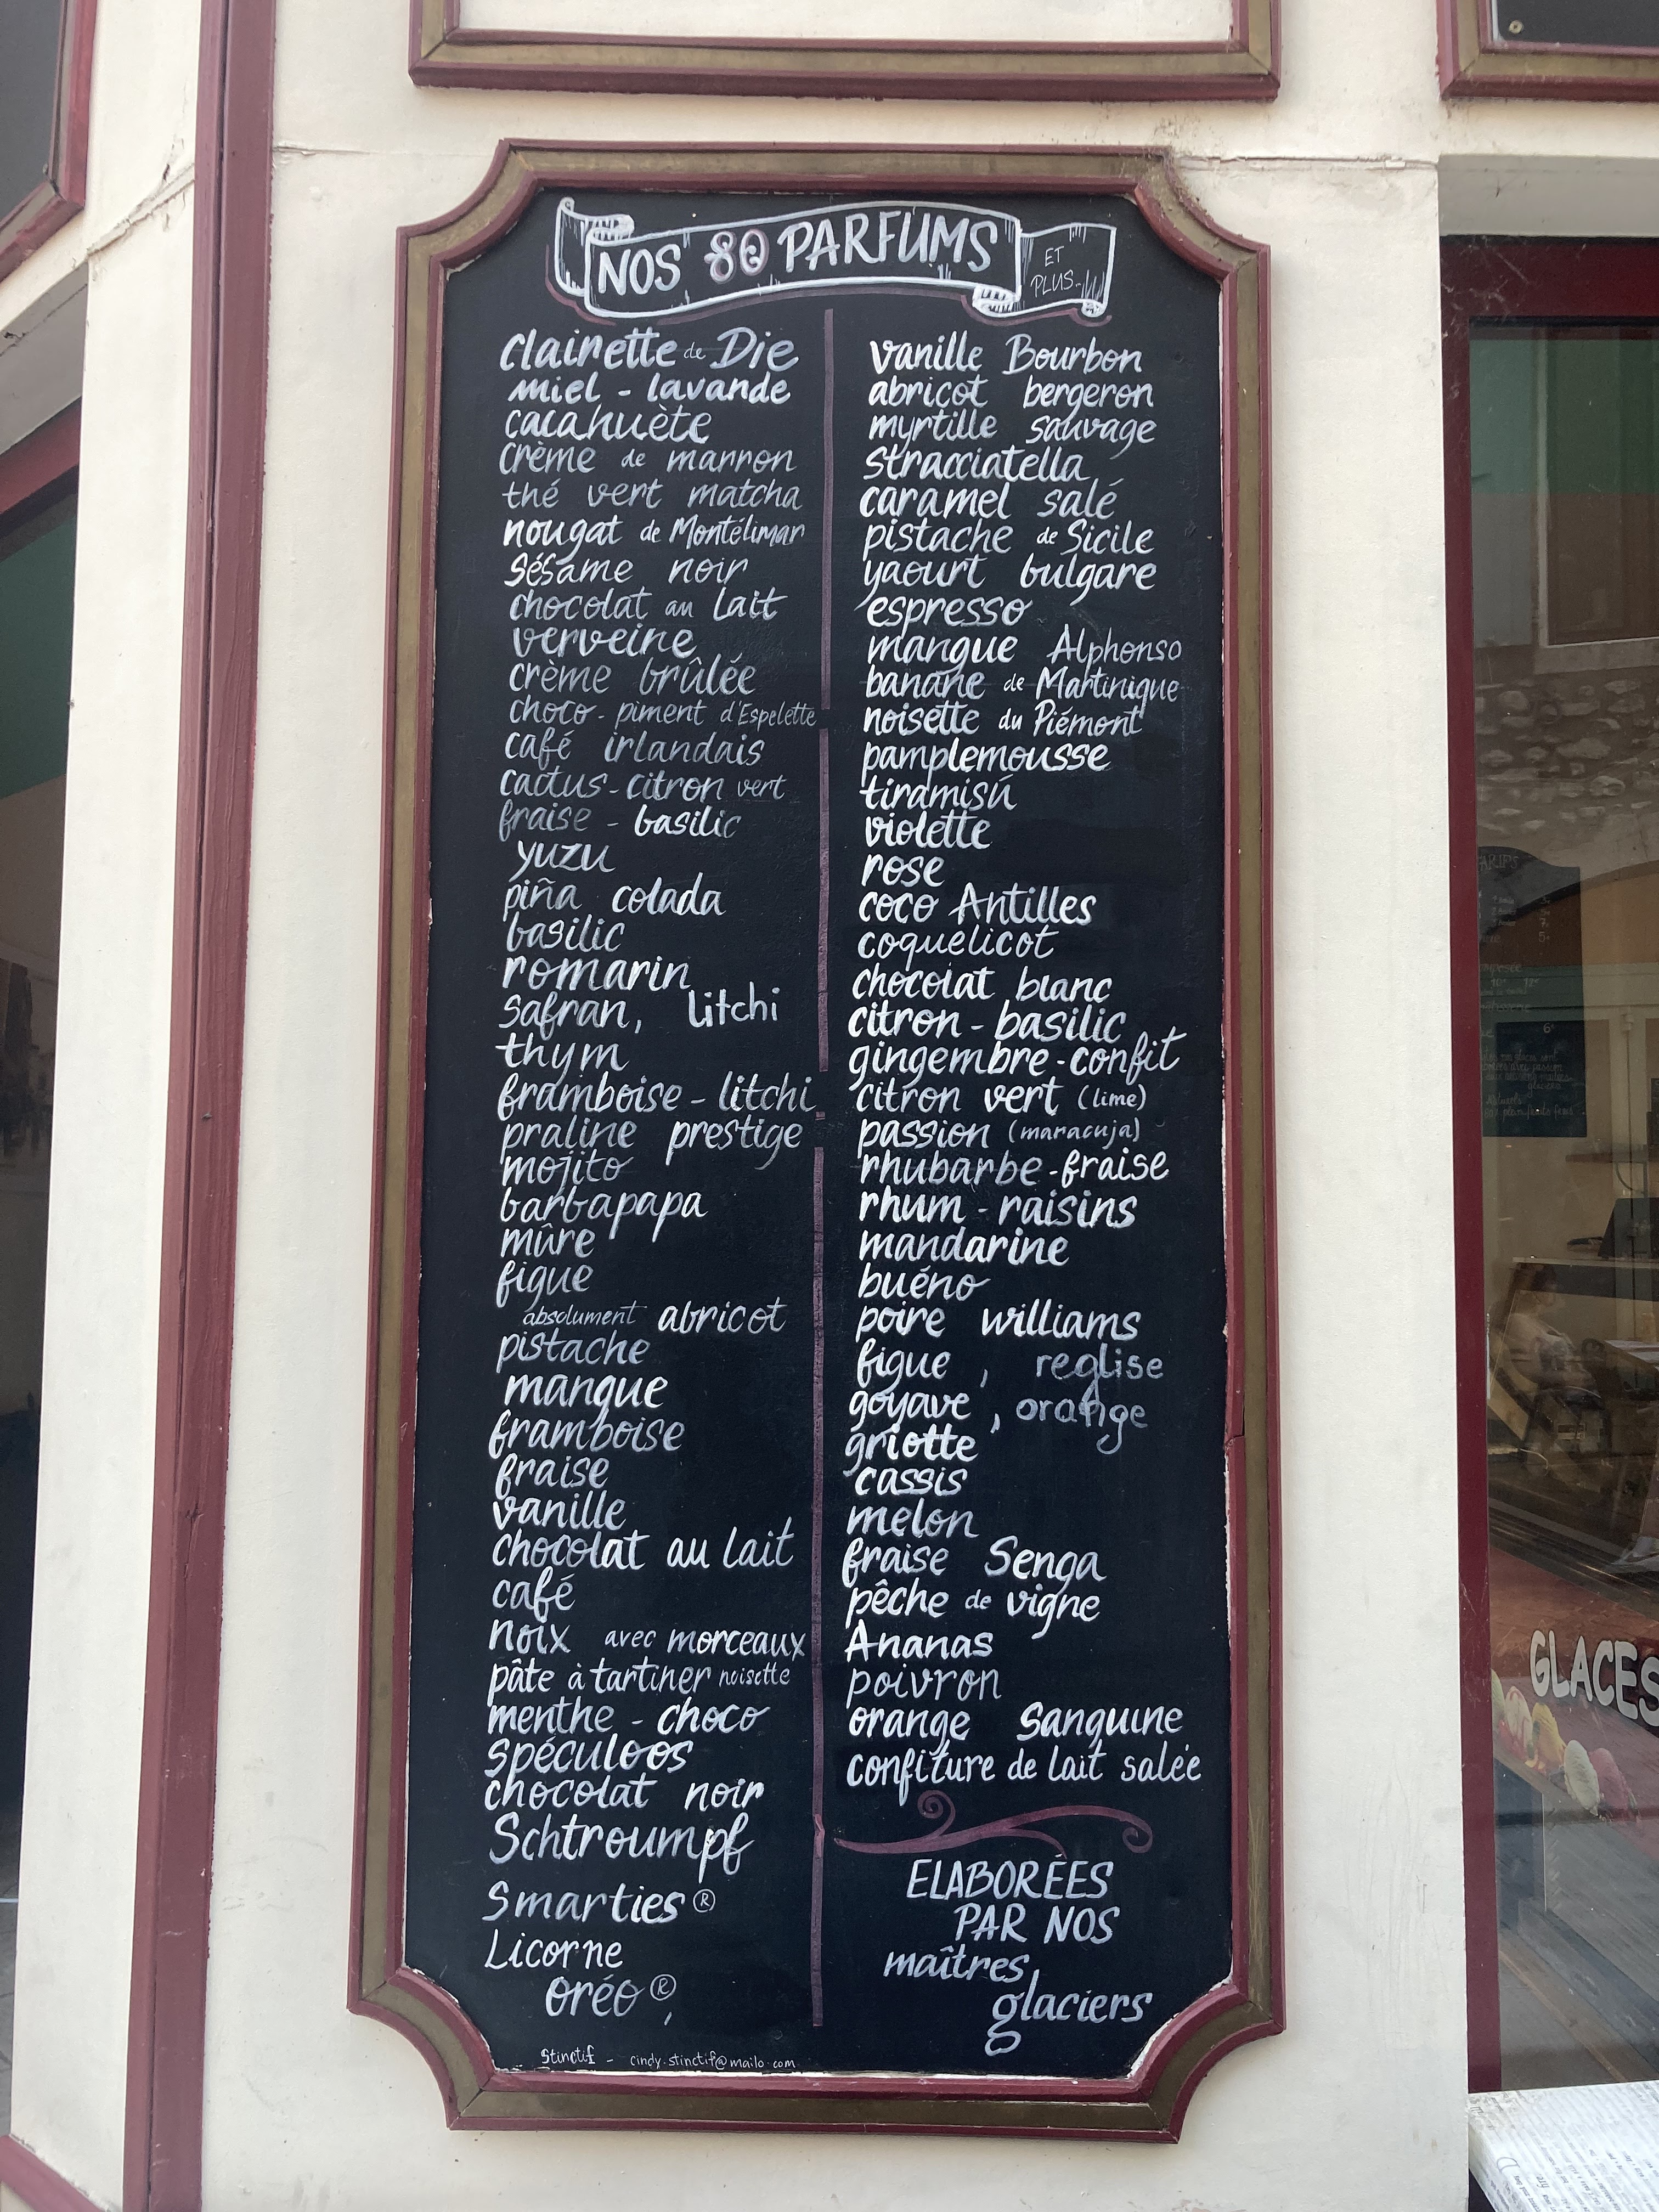 NOS 80 PARFUMS
ET
PLUS
clairette de Die
miel - lavande
cacahuète
crème de marron
thé vert matcha
nougat de Montélimar
sésame noir
chocolat au lait
verveine
crème brûlée
choco - piment d'Espelette
café irlandais
cactus - citron vert
fraise - basilic
yuzu
piña colada
basilic
romarin
safran, litchi
thym
framboise - litchi
praline prestige
mojito
barbapapa
mûre
figue
absolument abricot
pistache
mangue
framboise
fraise
vanille
chocolat au lait
café
noix avec morceaux
pâte à tartiner noisette
menthe - choco
spéculoos
chocolat noir
Schtroumpf
Smarties ®
Licorne
oréo ®,
Stinctif - cindy.stinctif@mailo.com
vanille Bourbon
abricot bergeron
myrtille sauvage
stracciatella
caramel salé
pistache de Sicile
yaourt bulgare
espresso
mangue Alphonso
banane de Martinique
noisette du Piémont
pamplemousse
tiramisú
violette
rose
coco Antilles
coquelicot
chocolat blanc
citron - basilic
gingembre - confit
citron vert (lime)
passion (maracuja)
rhubarbe - fraise
rhum - raisins
mandarine
buéno
poire williams
figue , reglise
goyave , orange
griotte
cassis
melon
fraise Senga
pêche de vigne
Ananas
poivron
orange Sanguine
confiture de lait salée
ELABORÉES
PAR NOS
maîtres
glaciers
GLACES